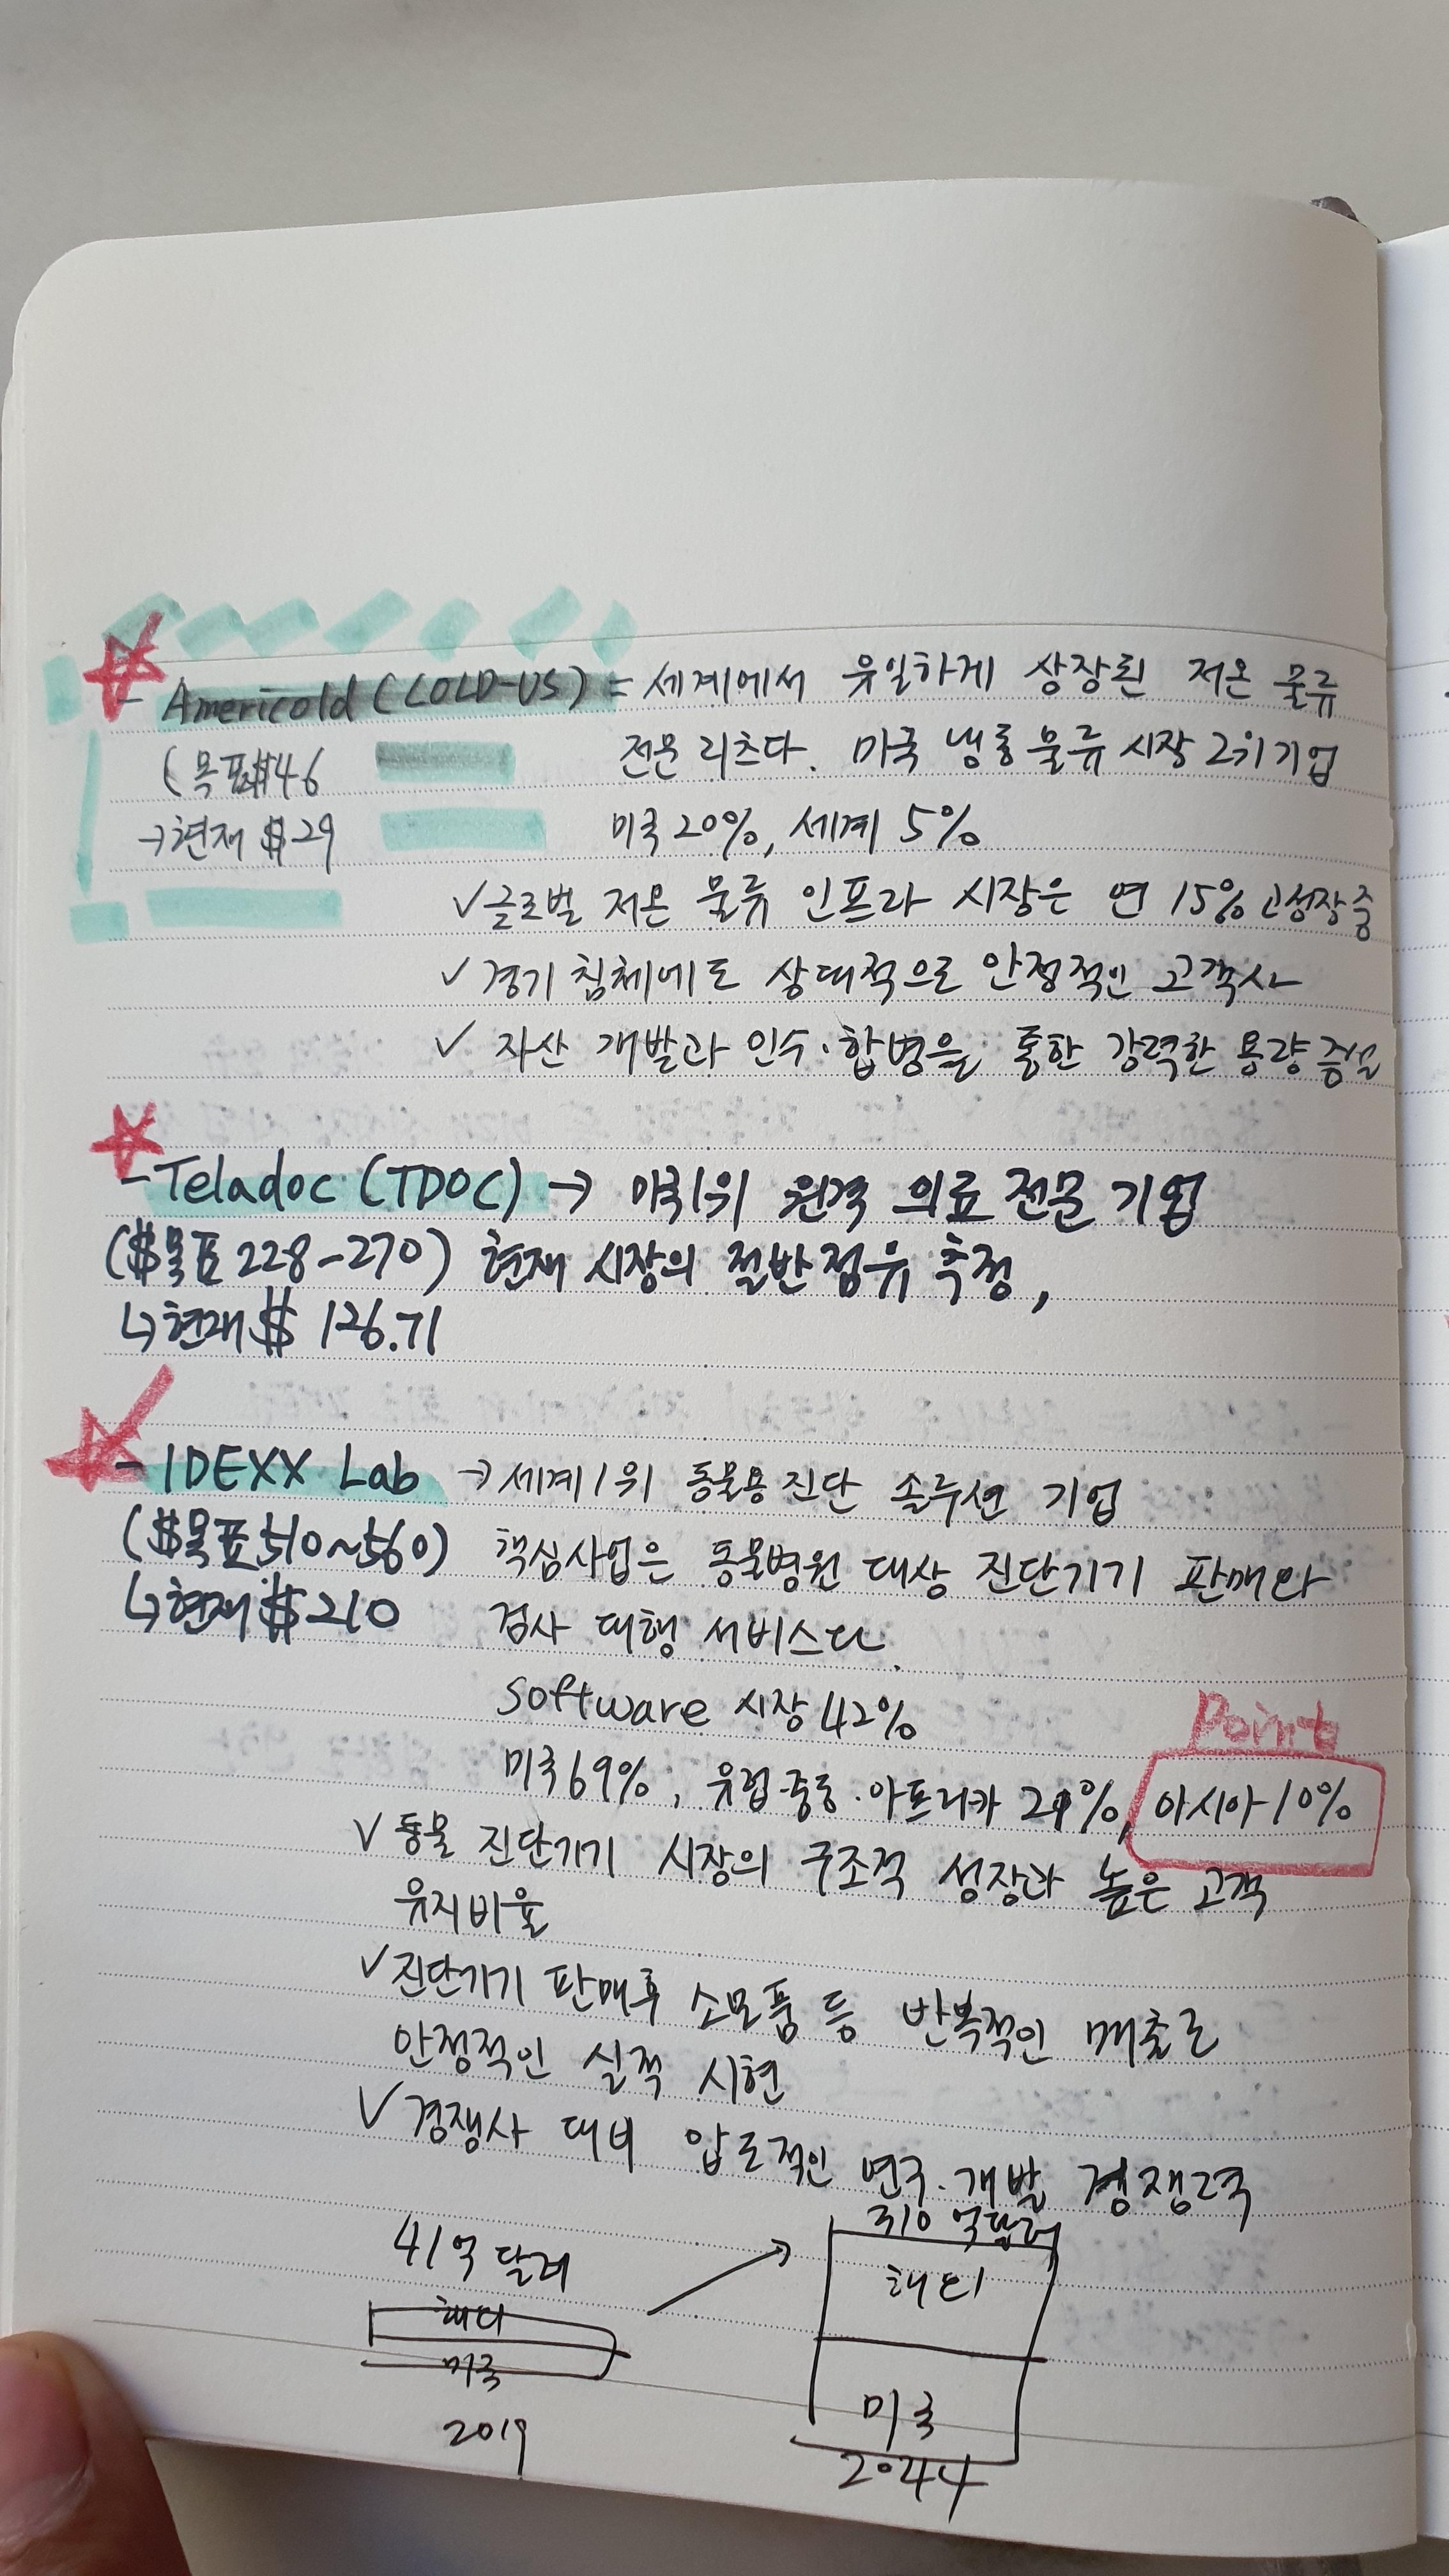 - Americold (COLD-US) = 세계에서 유일하게 상장된 저온 물류
(목표$46 전문 리츠다. 미국 냉동물류 시장 2위 기업
→현재 $29 미국 20%, 세계 5%
✓글로벌 저온 물류 인프라 시장은 연 15% 고성장 중
✓경기 침체에도 상대적으로 안정적인 고객사
✓ 자산 개발과 인수·합병을 통한 강력한 용량 증설
- Teladoc (TDOC) → 미국1위 원격 의료 전문 기업
($목표 228-270) 현재 시장의 절반 점유 추정,
↳현재 $ 126.71
- IDEXX Lab → 세계 1위 동물용 진단 솔루션 기업
($목표 510~560) 핵심사업은 동물병원 대상 진단기기 판매와
↳현재 $210 검사 대행 서비스다.
Software 시장 42%
Point
미국 69%, 유럽·중동·아프리카 21%, 아시아 10%
✓ 동물 진단기기 시장의 구조적 성장과 높은 고객
유지비율
✓진단기기 판매후 소모품 등 반복적인 매출로
안정적인 실적 시현
✓경쟁사 대비 압도적인 연구·개발 경쟁력
41억 달러 → 310 억달러
해외 해외
미국 미국
2019 2044